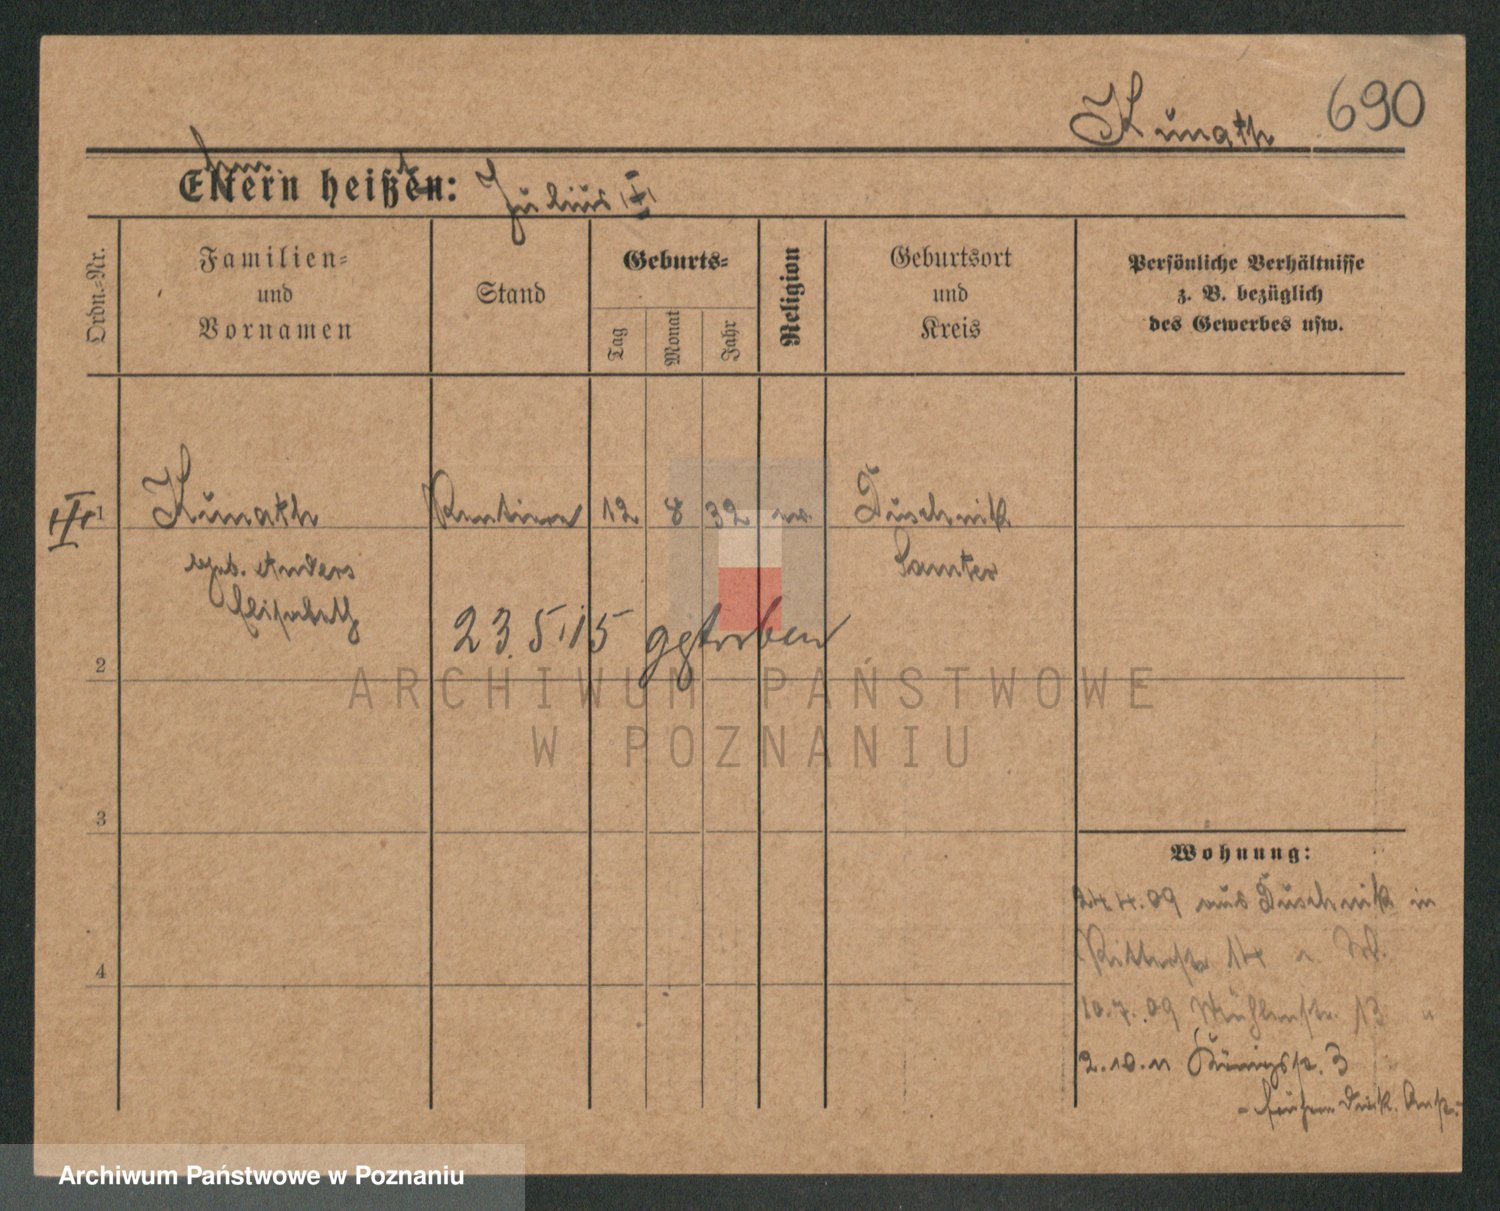 Kunath 690
Eltern heißen: Julius
Ordn.-Nr.
Familien-
und
Vornamen
Stand
Geburts-
Tag
Monat
Jahr
Religion
Geburtsort
und
Kreis
Persönliche Verhältnisse
z. B. bezüglich
des Gewerbes usw.
1 Kunath Rentiere 12 8 32 Duschnik
geb. Anders Samter
Elisabeth
23.5.15 gestorben
2
ARCHIWUM PAŃSTWOWE
W POZNANIU
3
Wohnung:
24.4.09 aus Duschnik in
Ritterstr 14
4
10.7.09 Mühlenstr. 13
2.10.11 Königstr. 3
Archiwum Państwowe w Poznaniu